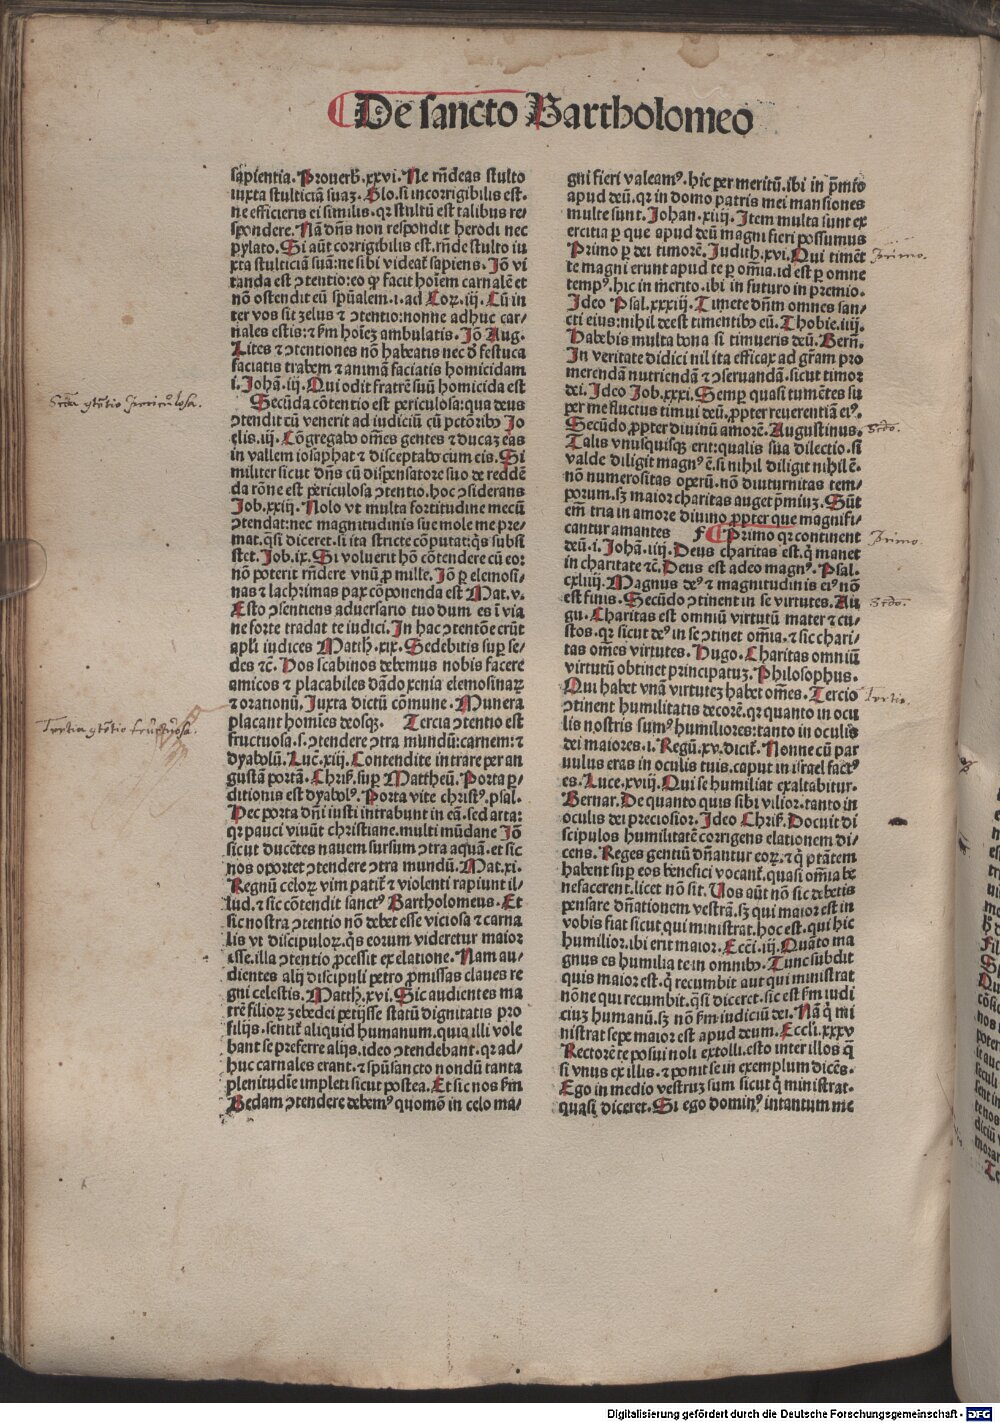 De sancto Bartholomeo
sapientia. Prouerb. xxvi. Ne rñdeas stulto
iuxta stulticiã suaꝫ. Glo. si incorrigibilis est.
ne efficieris ei similis. qꝛ stultũ est talibus re-
spondere. Nã dñs non respondit herodi nec
pylato. Si aũt corrigibilis est. rñde stulto iu
xta stulticiã suã: ne sibi videat̃ sapiens. Jõ vi
tanda est ↄtentio: eo ꝙ facit hoĩem carnalẽ et
nõ ostendit eũ spũalem. i. ad Coꝝ. iij. Cũ in
ter vos sit zelus ⁊ ↄtentio: nonne adhuc car-
nales estis: ⁊ ẜm hoĩeꝫ ambulatis. Jõ Aug.
Lites ⁊ ↄtentiones nõ habeatis nec ð festuca
faciatis trabem ⁊ animã faciatis homicidam
i. Johã. iij. Qui odit fratrẽ suũ homicida est
Secũda cõtentio est periculosa: qua deus
ↄtendit cũ venerit ad iudiciũ cũ pctõribꝰ Jo
elis. iij. Cõgregabo om̃es gentes ⁊ ducaꝫ eas
in vallem iosaphat ⁊ disceptabo cum eis. Si
militer sicut dñs cũ dispensatore suo de reddẽ
da rõne est periculosa ↄtentio. hoc ↄsiderans
Job. xxiij. Nolo vt multa fortitudine mecũ
ↄtendat: nec magnitudinis sue mole me pre-
mat. qͣsi diceret. si ita stricte cõputat: qͥs subsi
stet. Job. ix. Si voluerit hõ cõtendere cũ eo:
nõ poterit rñdere vnũ ꝓ mille. Jõ ꝑ elemosi-
nas ⁊ lachrimas pax cõponenda est Mat. v.
Esto ↄsentiens aduersario tuo dum es ĩ via
ne forte tradat te iudici. In hac ↄtentõe erũt
apl̃i iudices Matth̃. xix. Sedebitis suꝑ se-
des ⁊c̃. Hos scabinos debemus nobis facere
amicos ⁊ placabiles dãdo xenia elemosinaꝝ
⁊ orationũ. Juxta dictũ cõmune. Munera
placant homĩes deosqꝫ. Tercia ↄtentio est
fructuosa. s. ↄtendere ↄtra mundũ: carnem: ⁊
dyabolũ. Luc̃. xiij. Contendite intrare per an
gustam portã. Chriẜ. suꝑ Mattheũ. Porta ꝑ-
ditionis est dyabolꝰ. Porta vite christꝰ. psal.
Hec porta dñi iusti intrabunt in eã. sed arta:
qꝛ pauci viuũt christiane. multi mũdane Jõ
sicut ducẽtes nauem sursum ↄtra aquã. et sic
nos oportet ↄtendere ↄtra mundũ. Mat. xi.
Regnũ celoꝝ vim patit̃ ⁊ violenti rapiunt il-
lud. ⁊ sic cõtendit sanctꝰ Bartholomeus. Et
sic nostra ↄtentio nõ debet esse viciosa ⁊ carna
lis vt discipuloꝝ. qͥs eorum videretur maior
esse. illa ↄtentio ꝓcessit ex elatione. Nam au-
dientes alij discipuli petro ꝓmissas claues re
gni celestis. Matth̃. xvi. Sic audientes ma
trẽ filioꝝ zebedei petijsse statũ dignitatis pro
filijs. sentit̃ aliquid humanum. quia illi vole
bant se preferre alijs. ideo ↄtendebant. qꝛ ad-
huc carnales erant. ⁊ spũsancto nondũ tanta
plenitudĩe impleti sicut postea. Et sic nos ẜm
Bedam ↄtendere debemꝰ quomõ in celo ma-
gni fieri valeamꝰ. hic per meritũ. ibi in p̃mio
apud deũ. qꝛ in domo patris mei mansiones
multe sunt. Johan. xiiij. Item multa sunt ex
ercitia ꝑ que apud deũ magni fieri possumus
Primo ꝑ dei timorẽ. Judith̃. xvi. Qui timẽt
te magni erunt apud te ꝑ om̃ia. id est ꝑ omne
tempꝰ. hic in merito. ibi in futuro in premio.
Ideo Psal. xxxiij. Timete dñm omnes san-
cti eius: nihil deest timentibꝰ eũ. Thobie. iiij.
Habebis multa bona si timueris deũ. Berñ.
In veritate didici nil ita efficax ad gr̃am pro
merendã nutriendã ⁊ ↄseruandã. sicut timor
dei. Ideo Job. xxxi. Semꝑ quasi tumẽtes su
per me fluctus timui deũ. ꝓpter reuerentiã eiꝰ.
Secũdo ꝓpter diuinũ amorẽ. Augustinus.
Talis vnusquisqꝫ erit: qualis sua dilectio. si
valde diligit magnꝰ ẽ. si nihil diligit nihil ẽ.
nõ numerositas operũ. nõ diuturnitas tem-
porum. sꝫ maior charitas auget p̃miuꝫ. Sũt
em̃ tria in amore diuino ꝓpter que magnifi-
cantur amantes F Primo qꝛ continent
deũ. i. Johã. iiij. Deus charitas est. q̃ manet
in charitate ⁊c̃. Deus est adeo magnꝰ. Psal.
cxliiij. Magnus deꝰ ⁊ magnitudinis eiꝰ nõ
est finis. Secũdo ↄtinent in se virtutes. Au
gu. Charitas est omniũ virtutũ mater ⁊ cu-
stos. qꝛ sicut deꝰ in se ↄtinet om̃ia. ⁊ sic chari-
tas om̃es virtutes. Hugo. Charitas omniũ
virtutũ obtinet principatuꝫ. Philosophus.
Qui habet vnã virtuteꝫ habet om̃es. Tercio
ↄtinent humilitatis decorẽ. qꝛ quanto in ocu
lis nostris sumꝰ humiliores: tanto in oculis
dei maiores. i. Regũ. xv. dicit̃. Nonne cũ par
uulus eras in oculis tuis. caput in israel factꝰ
es. Luce. xviij. Qui se humiliat exaltabitur.
Bernar. De quanto quis sibi vilior. tanto in
oculis dei preciosior. Ideo Chriẜ. Docuit di
scipulos humilitatẽ corrigens elationem di-
cens. Reges gentiũ dñantur eoꝝ. ⁊ q̃ ptãtem
habent suꝑ eos benefici vocant̃. quasi om̃ia be
nefacerent. licet nõ sit. Vos aũt nõ sic debetis
pensare dñationem vestrã. sꝫ qui maior est in
vobis fiat sicut qui ministrat. hoc est. qui hic
humilior. ibi erit maior. Ecci. iij. Quãto ma
gnus es humilia te in omnibꝰ. Tunc subdit
quis maior est. q̃ recumbit aut qui ministrat
nõne qui recumbit. qͣsi diceret. sic est ẜm iudi
ciuꝫ humanũ. sꝫ nõ ẜm iudiciũ dei. Nã q̃ mi
nistrat sepe maior est apud deum. Eccli. xxxv
Rectorẽ te posui noli extolli. esto inter illos q̃
si vnus ex illis. ⁊ ponit se in exemplum dicẽs.
Ego in medio vestruꝫ sum sicut q̃ ministrat.
quasi diceret. Si ego dominꝰ intantum me
Scða ↄtẽtio periculosa.
Tertia ↄtẽtio fructuosa.
Primo.
Scðo.
Primo.
Scðo.
Tertio.
Digitalisierung gefördert durch die Deutsche Forschungsgemeinschaft - DFG